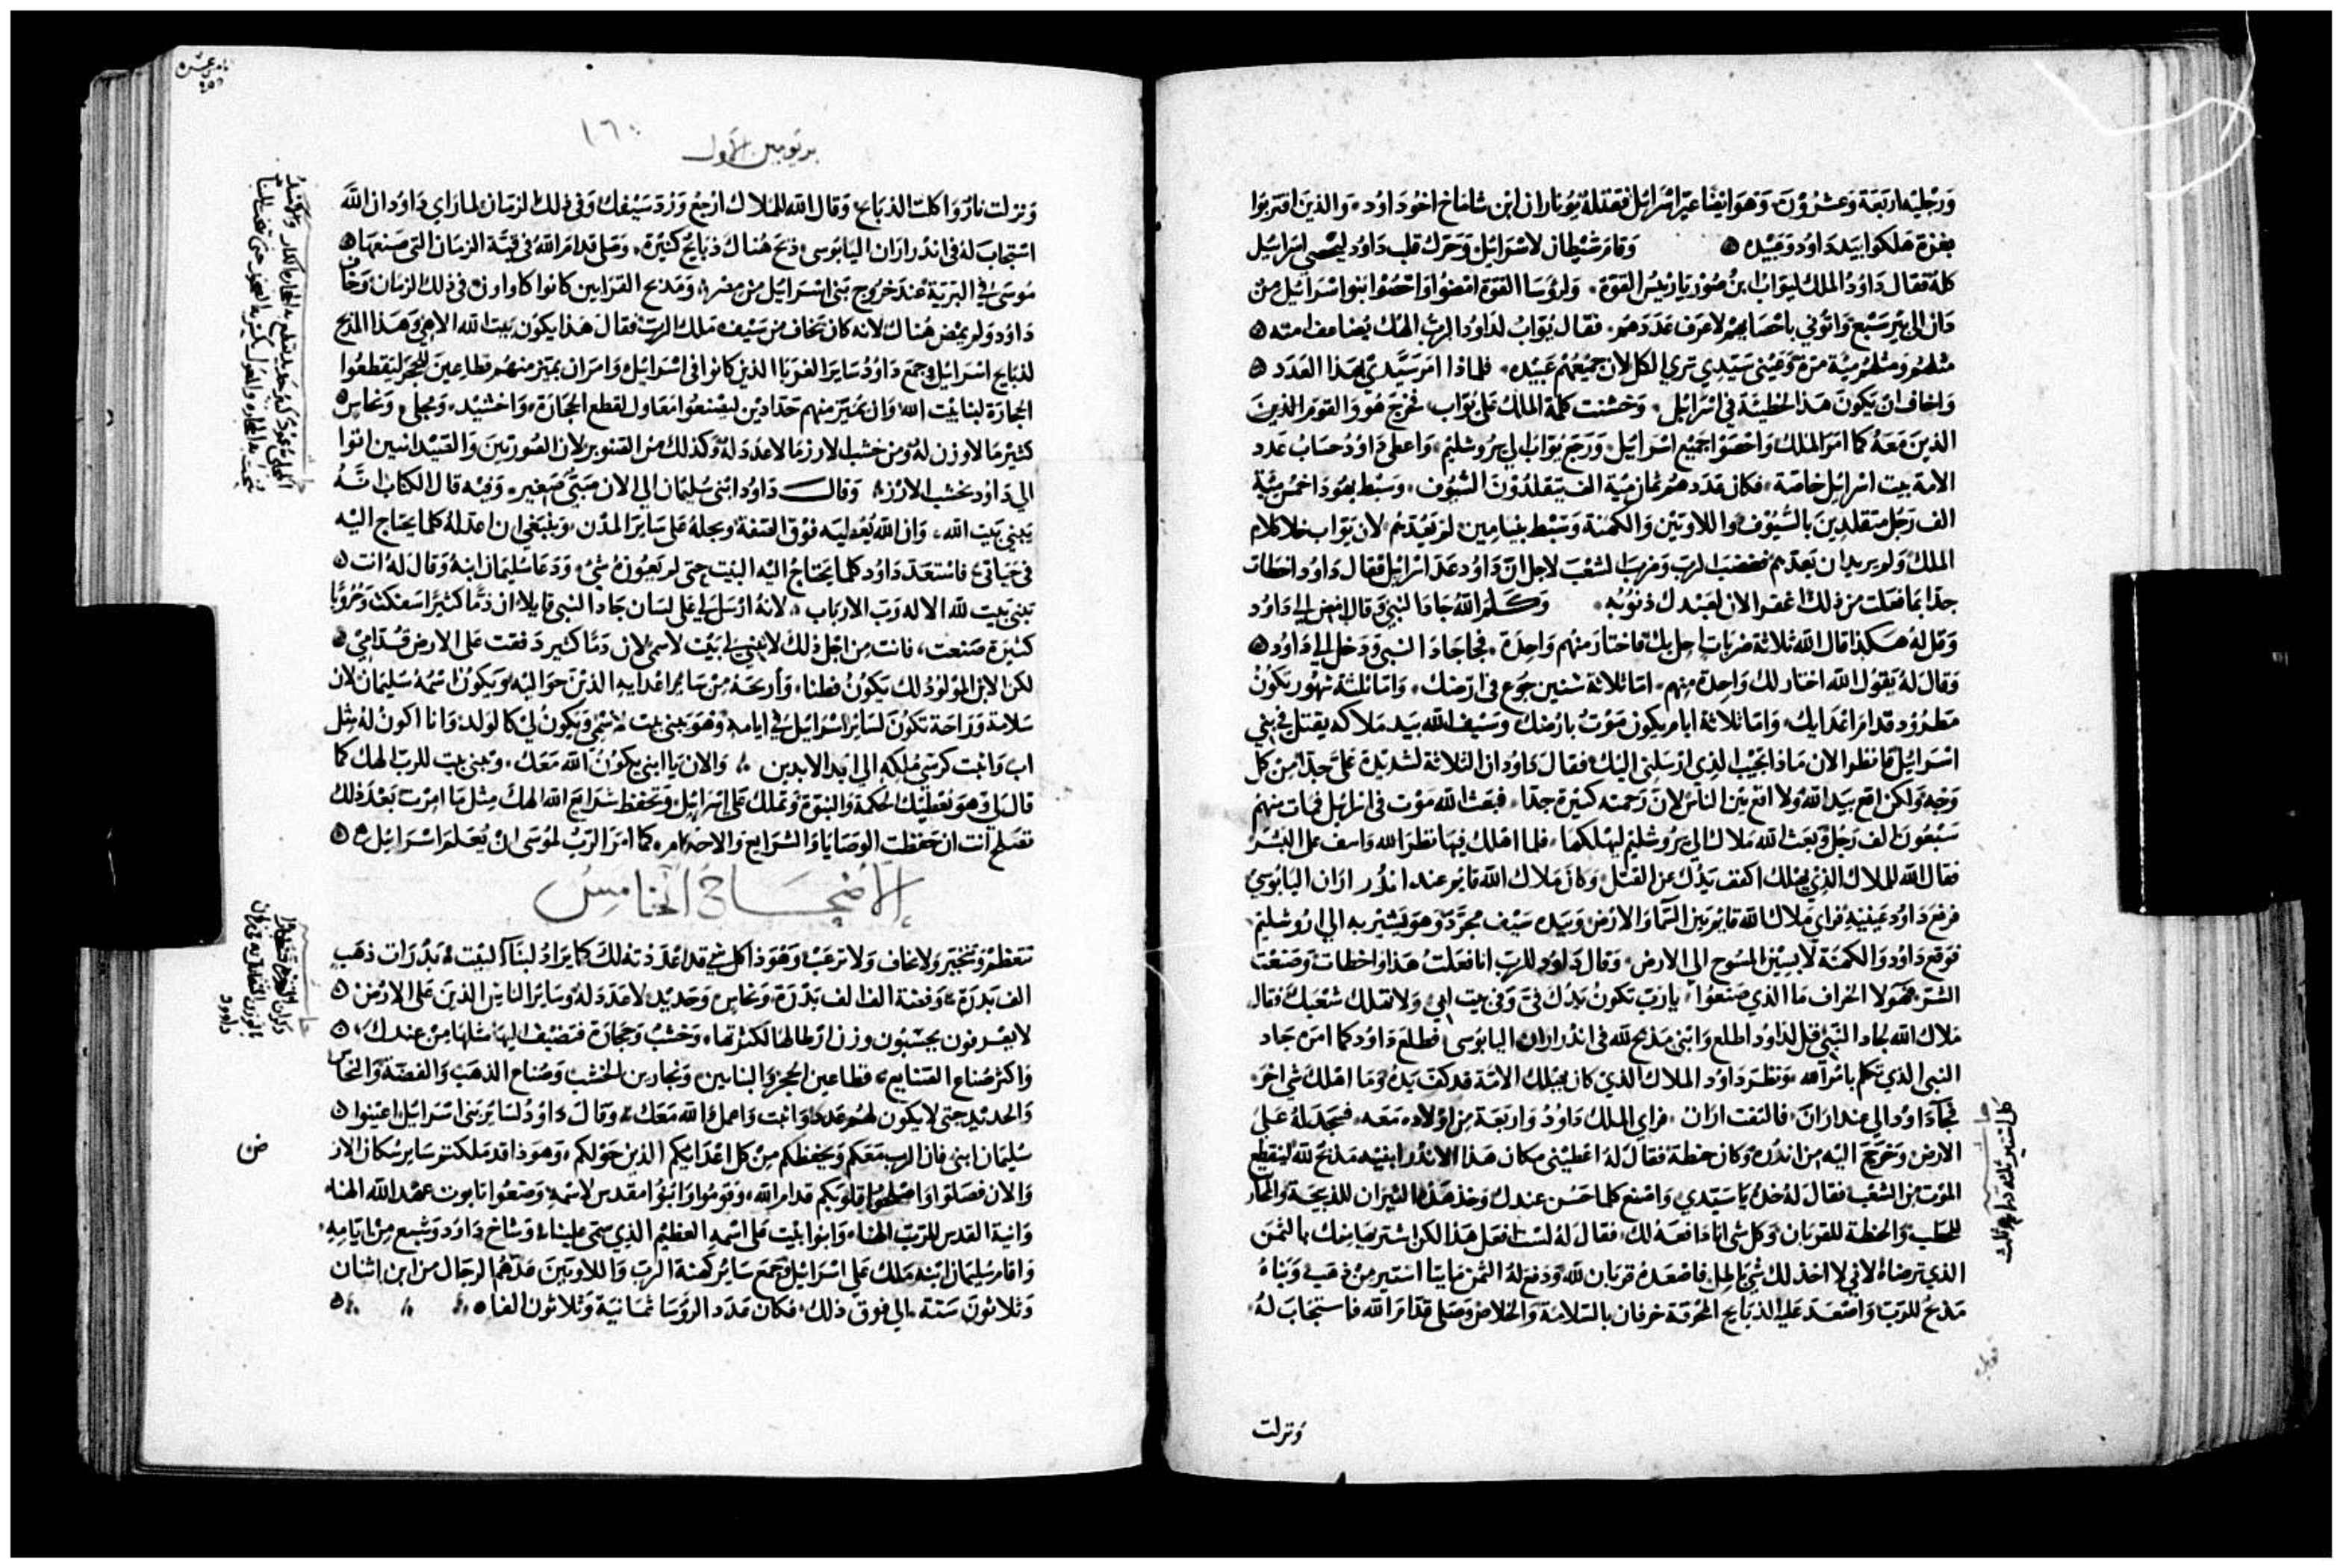 ورجليه اربعة وعشرون وهو ايضا عير اسرائيل فقتله يوناران ابن شاماخ اخو داود والذين اقتربوا
بغزة هلكوا بيد داود وعبيده وقام شيطان لاسرائيل وحرك قلب داود ليحصي اسرائيل
كله فقال داود الملك ليواب ابن صوريا رئيس القوة ولروسا القوة امضوا واحصوا بنو اسرائيل من
دان الى بير سبع واتوني باحصايهم لاعرف عددهم فقال يواب لداود الرب الهك يضاعف امته
مثلهم ومثلهم مية مرة وعيني سيدي تري الكل لان جميعهم عبيده فلماذا امر سيدي بهذا العدد
واخاف ان يكون هذا الخطية في اسرائيل وخشنت كلمة الملك على يواب فخرج هو والقوم الذين
الذين معه كما امر الملك واحصوا جميع اسرائيل ورجع يواب الي يروشليم واعطى داود حساب عدد
الامة بيت اسرائيل خاصة فكان عددهم ثمان مية الف يتقلدون السيوف وسبط يهودا خمس مية
الف رجل متقلدين بالسيوف واللاويين والكهنة وسبط بنيامين لم يعدهم لان يواب خلا كلام
الملك ولم يريد ان يعدهم فغضب الرب وضرب الشعب لاجل ان داود عد اسرائيل فقال داود اخطات
جدا بما فعلت من ذلك اغفر الان لعبدك ذنوبه وكلم الله جاد النبي وقال امض الي داود
وقل له هكذا قال الله ثلاثة ضربات احل بك فاختار منهم واحدة فجا جاد النبي ودخل الي داود
وقال له يقول الله اختار لك واحدة منهم اما ثلاثة سنين جوع في ارضك واما ثلثة شهور تكون
مطرود قدام اعدايك واما ثلاثة ايام يكون موت بارضك وسيف الله بيد ملاكه يقتل في بني
اسرائيل فانظر الان ماذا اجيب الذي ارسلني اليك فقال داود ان الثلاثة لشديدة علي جدا من كل
وجه ولكن اقع بيد الله ولا اقع بين الناس لان رحمته كثيرة جدا فبعث الله موت في اسرائيل فمات منهم
سبعون الف رجل وبعث الله ملاك الي يروشليم ليهلكها فلما اهلك فيها نظر الله واسف على البشر
فقال الله للملاك الذي يهلك اكفف يدك عن القتل وكان ملاك الله قايم عند اندر اران اليابوسي
فرفع داود عينيه فراي ملاك الله قايم بين السما والارض وبيده سيف مجرد وهو يشير به الي اروشليم
فوقع داود والكهنة لابسين المسوح الي الارض وقال داود للرب انا فعلت هذا واخطات وصنعت
الشر هولا الخراف ما الذي صنعوا يا رب تكون يدك فيّ وفي بيت ابي ولا تهلك شعبك فقال
ملاك الله لجاد النبي قل لداود اطلع وابني مذبح لله في اندر اران اليابوسى فطلع داود كما امره جاد
النبي الذي تكلم بامر الله ونظر داود الملاك الذي كان يهلك الامة قد كف يده وما اهلك شي اخر
فجا داود الي عند اران فالتفت اران فراي الملك داود واربعة من اولاده معه فسجد له على
الارض وخرج اليه من اندره وكان حنطة فقال له اعطيني مكان هذا الاندر ابنيه مذبح لله لينقطع
الموت من الشعب فقال له خذه يا سيدي واصنع كلما حسن عندك وخذ هذه الثيران للذبيحة والمحار
للحطب والحنطة للقربان وكل شي انا دافعه لك فقال له لست افعل هذا لكن اشتريها منك بالثمن
الذي ترضاه لاني لا اخذ لك شي باطل فاصعده قربان لله ودفع له الثمن مايتا استير من ذهب وبناه
مذبح للرب واصعد عليه الذبايح المحرقة خرفان بالسلامة والخلاص وصلى قدام الله فاستجاب له
ونزلت
بريومين الاول
١٦٠
ونزلت نار واكلت الذبايح وقال الله للملاك ارجع ورد سيفك وفي ذلك الزمان لما راي داود ان الله
استجاب له في اندر اران اليابوسى ذبح هناك ذبايح كثيرة وصلى قدام الله في قبة الزمان التي صنعها
موسى في البرية عند خروج بني اسرائيل من مصر ومذبح القرابين كانوا كاوا ون في ذلك الزمان وخاف
داود ولم يمض هناك لانه كان يخاف من سيف ملك الرب فقال هذا يكون بيت الله الاهي وهذا المذبح
لذبايح اسرائيل وجمع داود ساير الغربا الذين كانوا في اسرائيل وامر ان يميز منهم قطاعين للحجر ليقطعوا
الحجارة لبنا بيت الله وان يميز منهم حدادين ليصنعوا معاول لقطع الحجارة واخشيد ومجلي ونحاس
كثير ما لا وزن له ومن خشب الارز ما لا عدد له وكذلك من الصنوبر لان الصورتين والصيدانيين اتوا
الي داود بخشب الارز وقال داود ابني سليمان الي الان صبي صغير وفيه قال الكتاب انه
يبني بيت الله وان الله يعطيه فوق الصفة ويجله على ساير المدن وينبغي ان اعد له كلما يحتاج اليه
في حياتي فاستعد داود كلما يحتاج اليه البيت حتى لم يعوزه شي ودعا سليمان ابنه وقال له انت
تبني بيت لله الاله رب الارباب لانه ارسل الي على لسان جاد النبي قايلا ان دما كثيرا سفكت وحروبا
كثيرة صنعت فانت من اجل ذلك لا تبني لي بيت لاسمي لان دما كثير دفقت على الارض قدامي
لكن الابن المولود لك يكون فطنا واريحه من ساير اعدايه الذين حواليه ويكون اسمه سليمان لان
سلامة وراحة تكون لساير اسرائيل في ايامه وهو يبني بيت لاسمي ويكون لي كالولد وانا اكون له مثل
اب واثبت كرسي ملكه الي ابد الابدين والان يا ابني يكون الله معك وتبني بيت للرب الهك كما
قال لي وهو يعطيك الحكمة والنبوة وتملك على اسرائيل وتحفظ شرايع الله الهك مثل ما امرت بعد ذلك
تفلح انت ان حفظت الوصايا والشرايع والاحكام كما امر الرب لموسى ان يعلم اسرائيل
الاصحاح الخامس
تتعظم وتتخير ولا تخاف ولا ترعب وهوذا كل شي قد اعددته لك كما يراد لبنا البيت بدرات ذهب
الف بدرة وفضة الف الف بدرة ونحاس وحديد لا عدد له وساير الناس الذين على الارض
لا يعرفون يحسبون وزن ارطالها لكثرتها وخشب وحجارة فتضيف اليها مثلها من عندك
واكثر صناع الصنايع قطاعين الحجر والبنايين ونجارين الخشب وصناع الذهب والفضة والنحاس
والحديد حتى لا يكون لهم عدد واثبت واعمل الله معك وقال داود لساير بني اسرائيل اعينوا
سليمان ابني فان الرب معكم ويحفظكم من كل اعدايكم الذين حولكم وهوذا قد ملكتم ساير سكان الارض
والان فصلوا واصلحوا قلوبكم قدام الله وقوموا وابنوا مقدس لاسمه وضعوا تابوت عهد الله الهنا
وانية القدس للرب الهنا وابنوا بيت على اسمه العظيم الذي سمى علينا وشاخ داود وشبع من ايامه
واقام سليمان ابنه ملك على اسرائيل وجمع ساير كهنة الرب واللاويين عدهم الرجال من ابن اثنان
وثلاثون سنة الي فوق ذلك فكان عدد الروسا ثمانية وثلاثون الفا